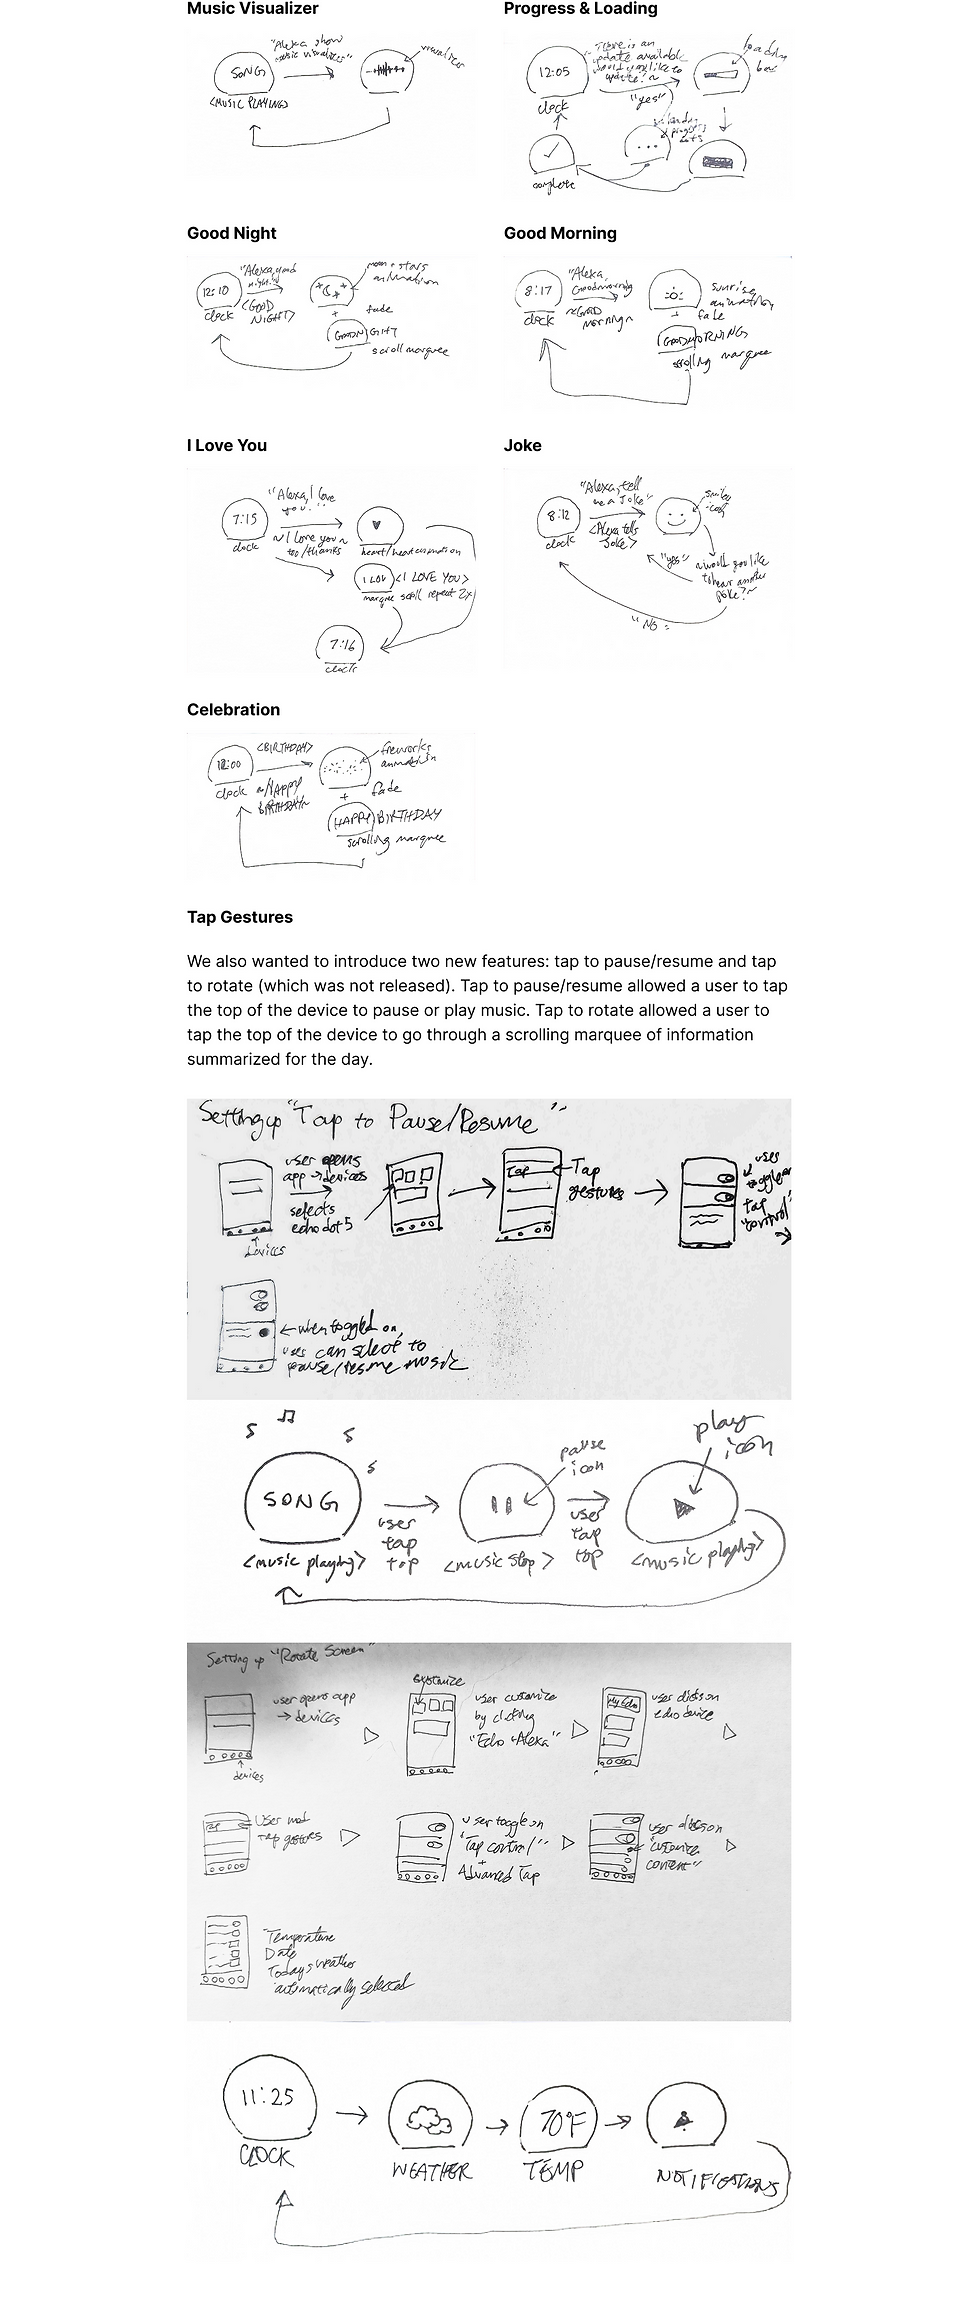 Music Visualizer
"Alexa show
music visualizer"
visualizer
SONG
<MUSIC PLAYING>
Progress & Loading
There is an
update available
would you like to
update?~
loading
bar
12:05
"yes"
clock
progress
dots
...
complete
Good Night
"Alexa, good
night"
moon + stars
animation
12:10
clock
<GOOD
NIGHT>
+
fade
GOODNIGHT
scroll marquee
Good Morning
"Alexa,
Goodmorning
8:17
clock
~GOOD
morning~
sunrise
animation
+
fade
GOODMORNING
scrolling marquee
I Love You
"Alexa, I love
you."
7:15
clock
~I love you~
too/thanks
heart/heart animation
I LOV <I LOVE YOU>
marquee scroll repeat 2x
7:16
clock
Joke
"Alexa, tell
me a Joke"
smiley
icon
8:12
clock
<Alexa tells
Joke>
"yes"
~would you like
to hear another
joke?~
"NO"
Celebration
<BIRTHDAY>
fireworks
animation
12:00
clock
~HAPPY
BIRTHDAY~
+
fade
HAPPY BIRTHDAY
scrolling marquee
Tap Gestures
We also wanted to introduce two new features: tap to pause/resume and tap
to rotate (which was not released). Tap to pause/resume allowed a user to tap
the top of the device to pause or play music. Tap to rotate allowed a user to
tap the top of the device to go through a scrolling marquee of information
summarized for the day.
Setting up "Tap to Pause/Resume"
user opens
app → devices
selects
echo dot 5
devices
Tap
Tap
gestures
user
toggle on
tap
"control"
when toggled on,
user can select to
pause/resume music
SONG
<music playing>
user
tap
top
pause
icon
<music stop>
user
tap
top
play
icon
<music playing>
Setting up "Rotate Screen"
user opens app
→ devices
devices
user customize
by clicking
"Echo & Alexa"
My Echo
user clicks on
echo device
Tap
Tap gestures
user toggle on
"Tap control"
+
Advanced Tap
user clicks on
"customize
content"
Temperature
Date
Todays weather
automatically selected
11:25
CLOCK
WEATHER
70°F
TEMP
NOTIFICATIONS